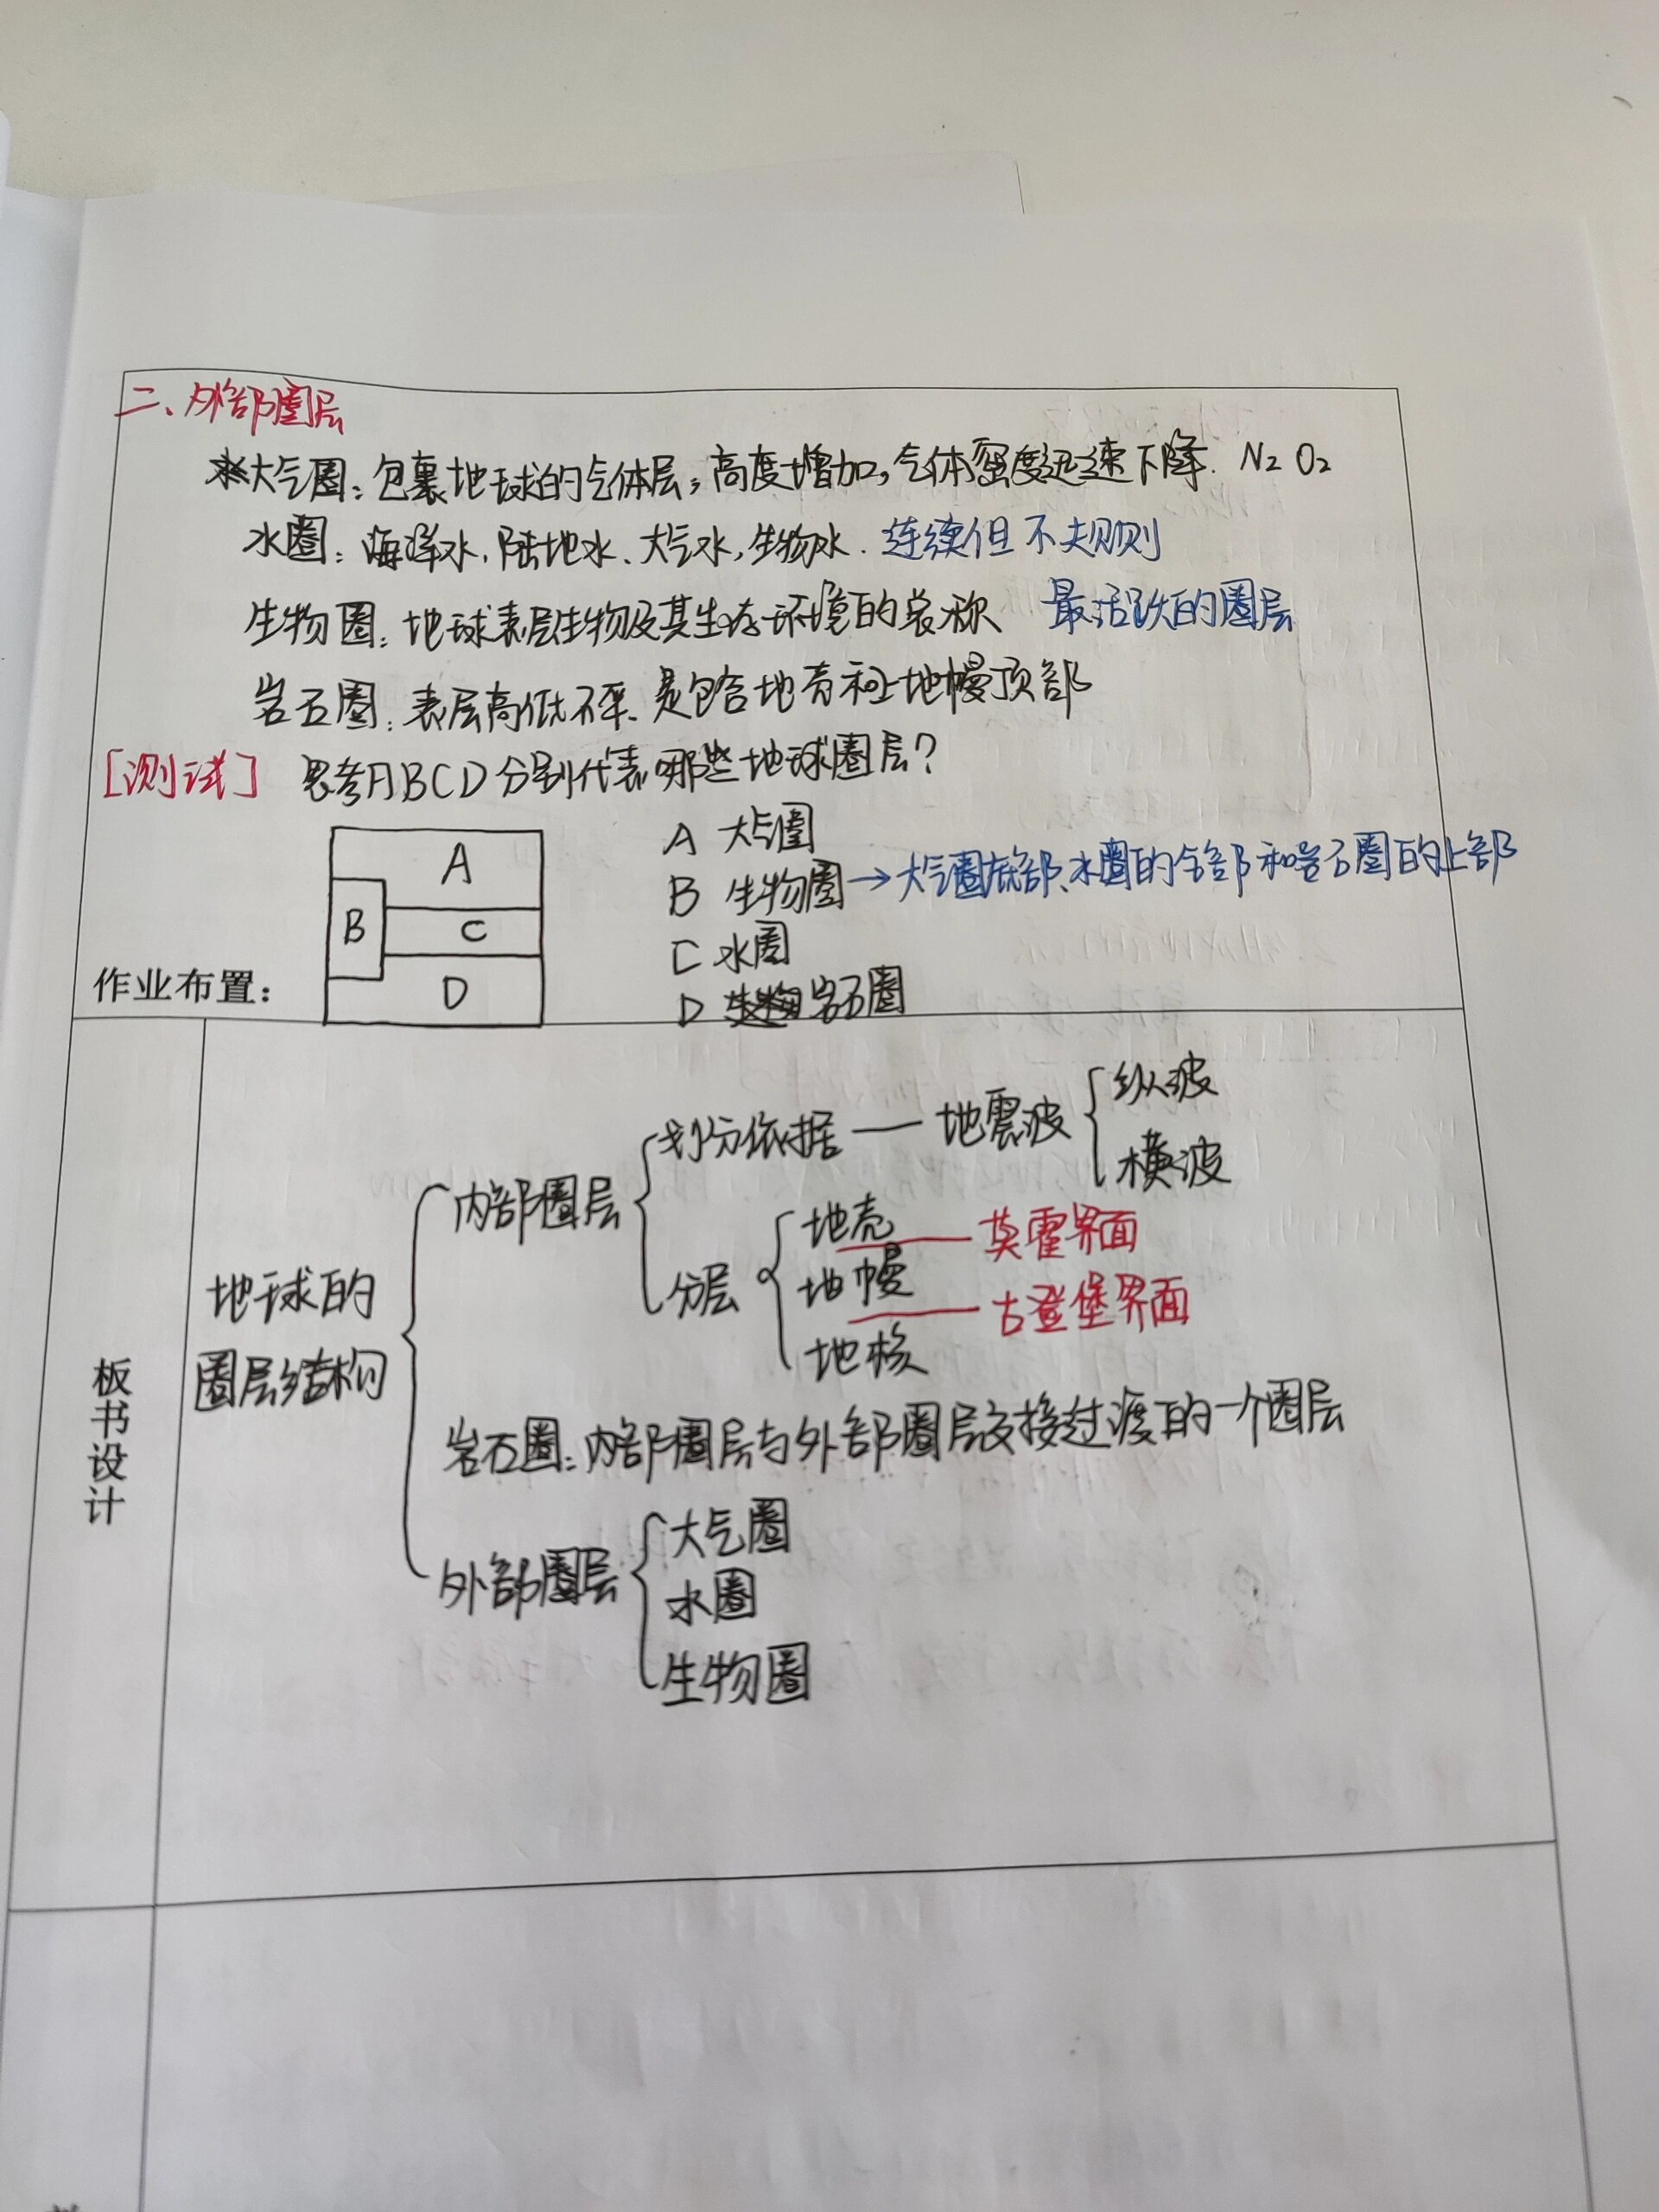 二、外部圈层
大气圈：包裹地球的气体层，高度增加，气体密度迅速下降. N₂ O₂
水圈：海洋水、陆地水、大气水，生物水. 连续但不规则
生物圈：地球表层生物及其生存环境的总称 最活跃的圈层
岩石圈：表层高低不平、是包含地壳和上地幔顶部
[测试] 思考ABCD分别代表哪些地球圈层?
A 大气圈
B 生物圈→大气圈底部、水圈的全部和岩石圈的上部
C 水圈
D 岩石圈
A
B
C
D
作业布置：
板书设计
地球的
圈层结构
内部圈层
划分依据 — 地震波
纵波
横波
分层
地壳
莫霍界面
地幔
古登堡界面
地核
岩石圈：内部圈层与外部圈层交接过渡的一个圈层
外部圈层
大气圈
水圈
生物圈